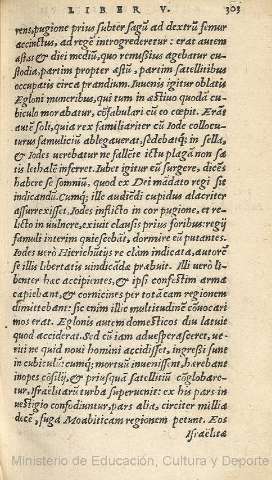 LIBER V. 303
rens, pugione prius subter sagũ ad dextrũ femur
accinctus, ad regẽ introgrederetur: erat autem
æstas & diei mediũ, quo remissius agebatur cu-
stodia, partim propter æstũ, partim satellitibus
occupatis circa prandium. Iuuenis igitur oblatis
Egloni muneribus, qui tum in æstiuo quodã cu-
biculo morabatur, cõfabulari cũ eo cœpit. Erãt
autẽ soli, quia rex familiariter cũ Iode collocu-
turus famuliciũ ablegauerat, sedebatq; in sella,
& Iodes uerebatur ne fallẽte ictu plagã non sa-
tis lethalẽ inferret. Iubet igitur eũ surgere, dicẽs
habere se somniũ, quod ex Dei mãdato regi sit
indicandũ. Cumq; ille audiẽdi cupidus alacriter
assurrexisset, Iodes inflicto in cor pugione, et re-
licto in uulnere, exiuit clausis prius foribus: regij
famuli interim quiescebãt, dormire eũ putantes.
Iodes uerò Hierichũtijs re clàm indicata, autorẽ
se illis libertatis uindicãdæ præbuit. Illi uerò li-
benter hæc accipientes, & ipsi confestim arma
capiebant, & cornicines per totã eam regionem
dimittebant: sic enim illic multitudinẽ cõuocari
mos erat. Eglonis autem domesticos diu latuit
quod acciderat. Sed cũ iam aduesperasceret, ue-
riti ne quid noui homini accidisset, ingressi sunt
in cubiculũ: cumq; mortuũ inuenissent, hærebant
inopes cõsilij, & priusquã satellitiũ cõglobare-
tur, Israelitarũ turba superuenit: ex his pars in
uestigio confodiuntur, pars alia, circiter millia
decẽ, fuga Moabiticam regionem petunt. Eos
Israelitæ
Ministerio de Educación, Cultura y Deporte